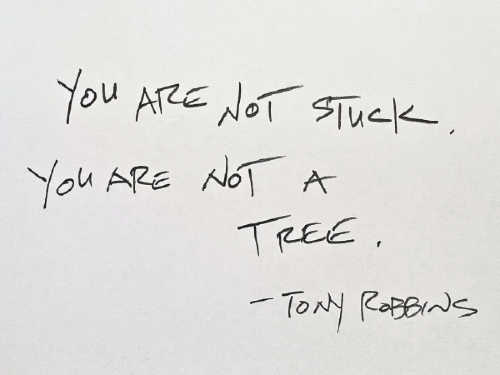 YOU ARE NOT STUCK.
YOU ARE NOT A
TREE.
- TONY ROBBINS